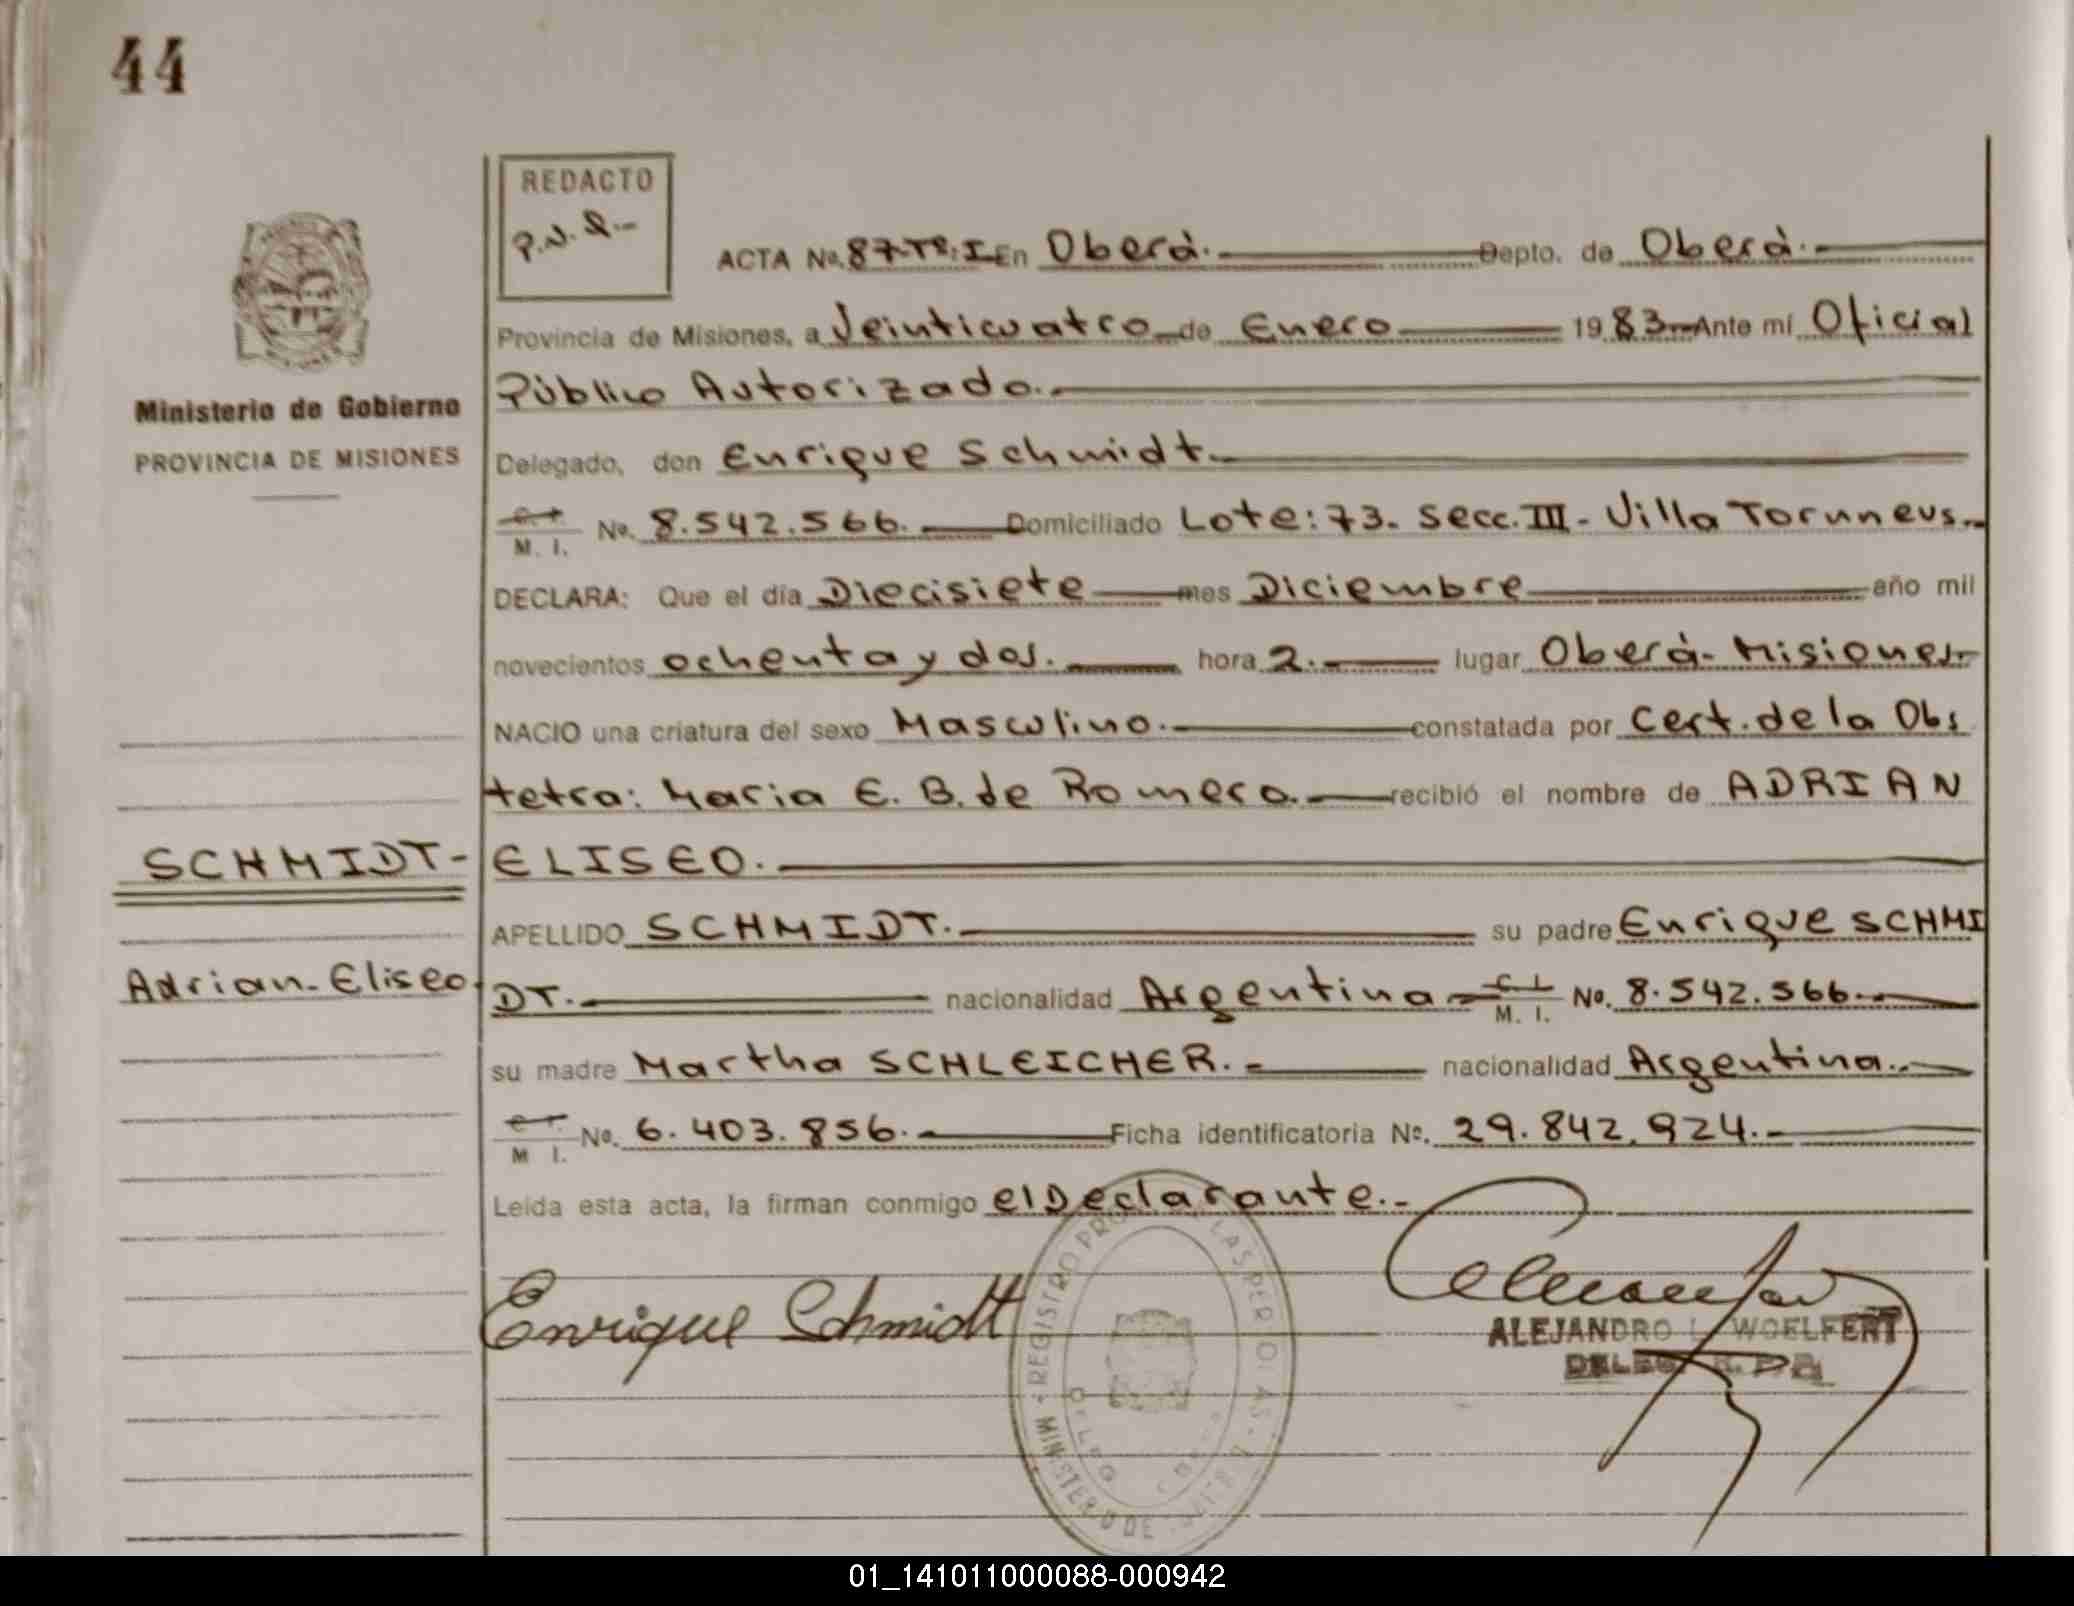 44
REDACTO
P.N.S.-
ACTA No. 87-Tº:I En Oberá. Depto. de Oberá.
Provincia de Misiones, a Veinticuatro de Enero 1983 Ante mí Oficial
Público Autorizado.
Ministerio de Gobierno
PROVINCIA DE MISIONES
Delegado, don Enrique Schmidt.
C. I. M. I. No. 8.542.566. Domiciliado Lote: 73. Secc. III - Villa Torunneus.
DECLARA: Que el día Diecisiete mes Diciembre año mil
novecientos ochenta y dos. hora 2. lugar Oberá - Misiones.
NACIO una criatura del sexo Masculino. constatada por Cert. de la Obs
tetra: Maria E. B. de Romero. recibió el nombre de ADRIAN
SCHMIDT- ELISEO.
APELLIDO SCHMIDT. su padre Enrique SCHMI
Adrian-Eliseo. DT. nacionalidad Argentina C. I. M. I. No. 8.542.566.
su madre Martha SCHLEICHER. nacionalidad Argentina.
C. I. M I. No. 6.403.856. Ficha identificatoria No. 29.842.924.
Leída esta acta, la firman conmigo el Declarante.
Enrique Schmidt
ALEJANDRO L. WOELFERT
DELEG. R. P. P.
REGISTRO PRO LAS PER
MINISTERIO DE
DELEG
01_141011000088-000942